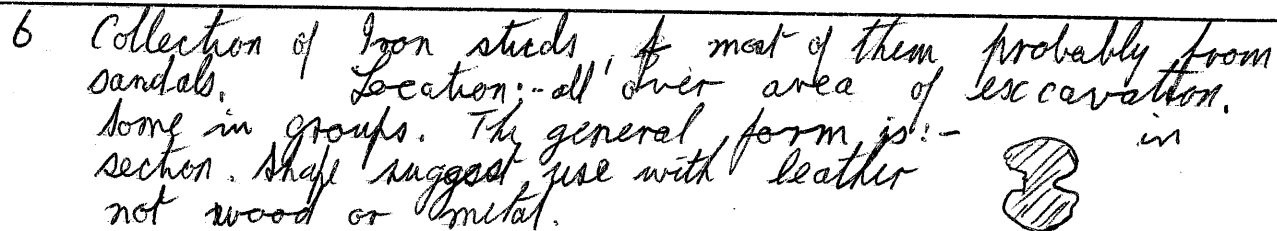 6 Collection of Iron studs, most of them probably from
sandals. Location:- all over area of excavation.
Some in groups. The general form is:- in
section. Shape suggest use with leather
not wood or metal.